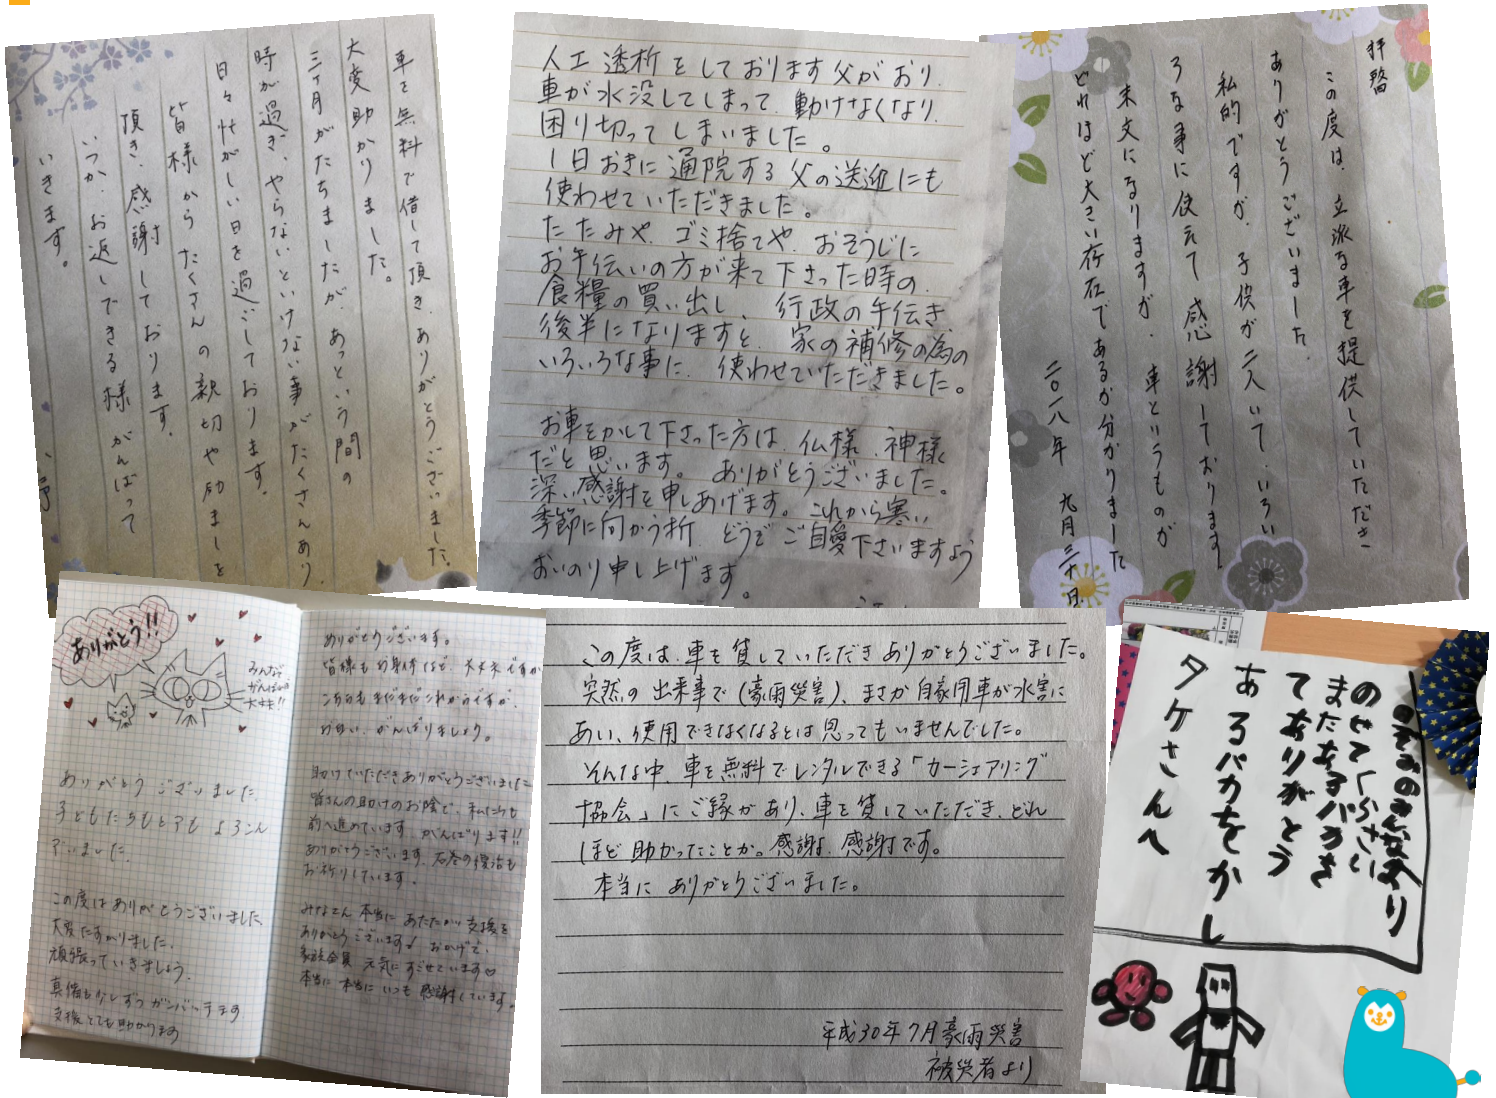 車を無料で借して頂き、ありがとうございました。
大変助かりました。
三ヶ月がたちましたが、あっという間の
時が過ぎ、やらないといけない事がたくさんあり、
日々忙がしい日を過ごしております。
皆様からたくさんの親切や励ましを
頂き、感謝しております。
いつか、お返しできる様がんばって
いきます。
人工透析をしております父がおり、
車が水没してしまって、動けなくなり、
困り切ってしまいました。
1日おきに通院する父の送迎にも
使わせていただきました。
たたみや、ゴミ捨てや、おそうじに
お手伝いの方が来て下さった時の、
食糧の買い出し、行政の手伝き、
後半になりますと、家の補修の為の
いろいろな事に、使わせていただきました。
お車をかして下さった方は、仏様、神様
だと思います。ありがとうございました。
深い感謝を申しあげます。これから寒い
季節に向かう折、どうぞご自愛下さいますよう
おいのり申し上げます。
拝啓
この度は、立派な車を提供していただき
ありがとうございました。
私的ですが、子供が二人いて、いろい
ろな事に使えて感謝しております。
末文になりますが、車というものが
どれほど大きい存在であるか分かりました
二〇一八年 九月三十日
ありがとう!!
みんなで
がんばれば
大丈夫!!
ありがとうございました
子どもたちもとてもよろこん
でいました。
この度はありがとうございました
大変たすかりました。
頑張っていきましょう。
真備も少しずつガンバッテます
支援とても助かります
ありがとうございます。
皆様もお身体など、大丈夫ですか
こちらもまだまだこれからですが、
お互い、がんばりましょう。
助けていただきありがとうございました
皆さんの助けのお陰で、私たちも
前へ進めています。がんばります!!
ありがとうございます。石巻の復活も
お祈りしています。
みなさん本当にあたたかい支援を
ありがとうございます おかげで、
家族全員 元気にすごせています♡
本当に本当にいつも感謝しています。
この度は、車を貸していただきありがとうございました。
突然の出来事で(豪雨災害)、まさか自家用車が水害に
あい、使用できなくなるとは思ってもいませんでした。
そんな中、車を無料でレンタルできる「カーシェアリング
協会」にご縁があり、車を貸していただき、どれ
ほど助かったことか。感謝、感謝です。
本当にありがとうございました。
平成30年7月豪雨災害
被災者より
タケさんへ
あるバカをかし
てありがとう
またあるバうさ
のせてください
のみんなより